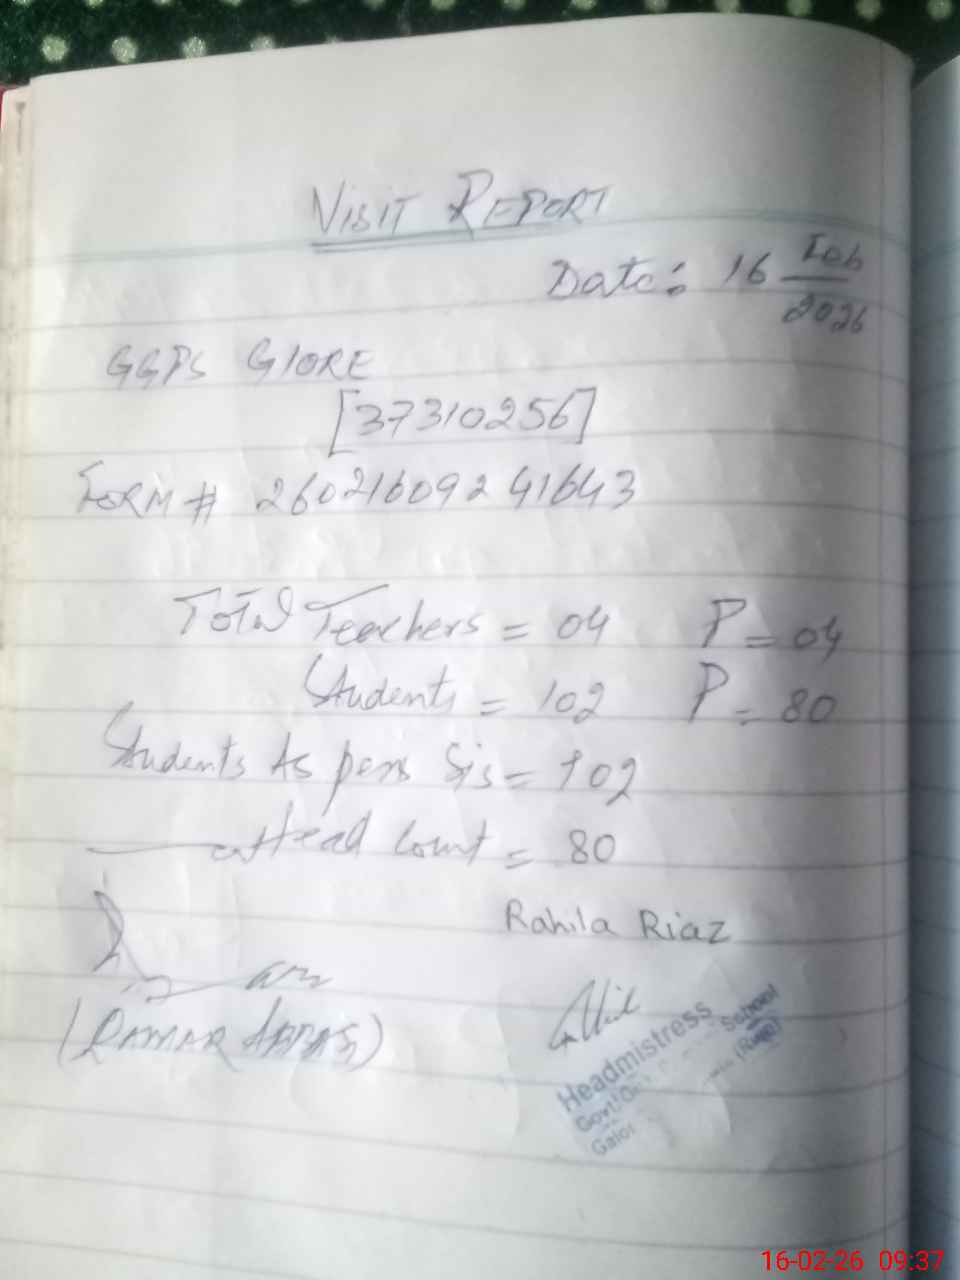 VISIT REPORT
Date: 16 Feb
2026
GGPS GLORE
[37310256]
FORM # 260216092 41643
Total Teachers = 04 P = 04
Students = 102 P = 80
Students As pers Sis = 102
Head Count = 80
Rahila Riaz
Headmistress
Govt: School
Galor
16-02-26 09:37